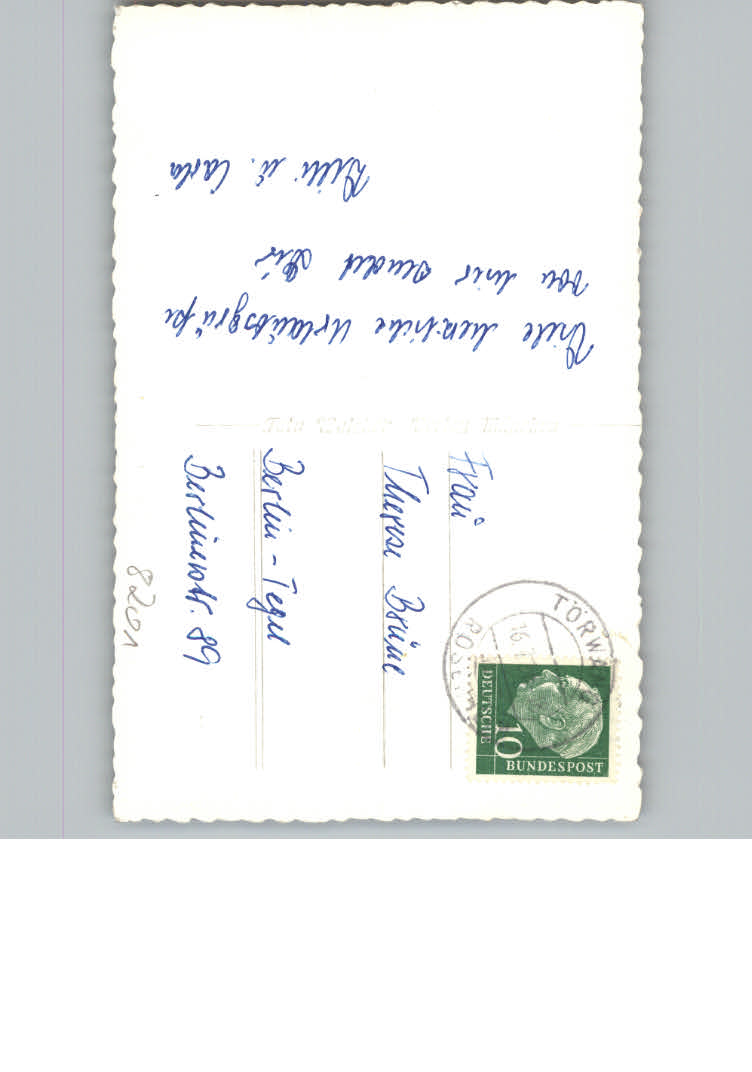 Viele herzliche Urlaubsgrüße
von hier sendet Dir
Willi u. Carla
Frau
Therese Brüne
Berlin - Tegel
Berlinerstr. 89
8201
TÖRWANG
ROSENHEIM
16.
DEUTSCHE
BUNDESPOST
10